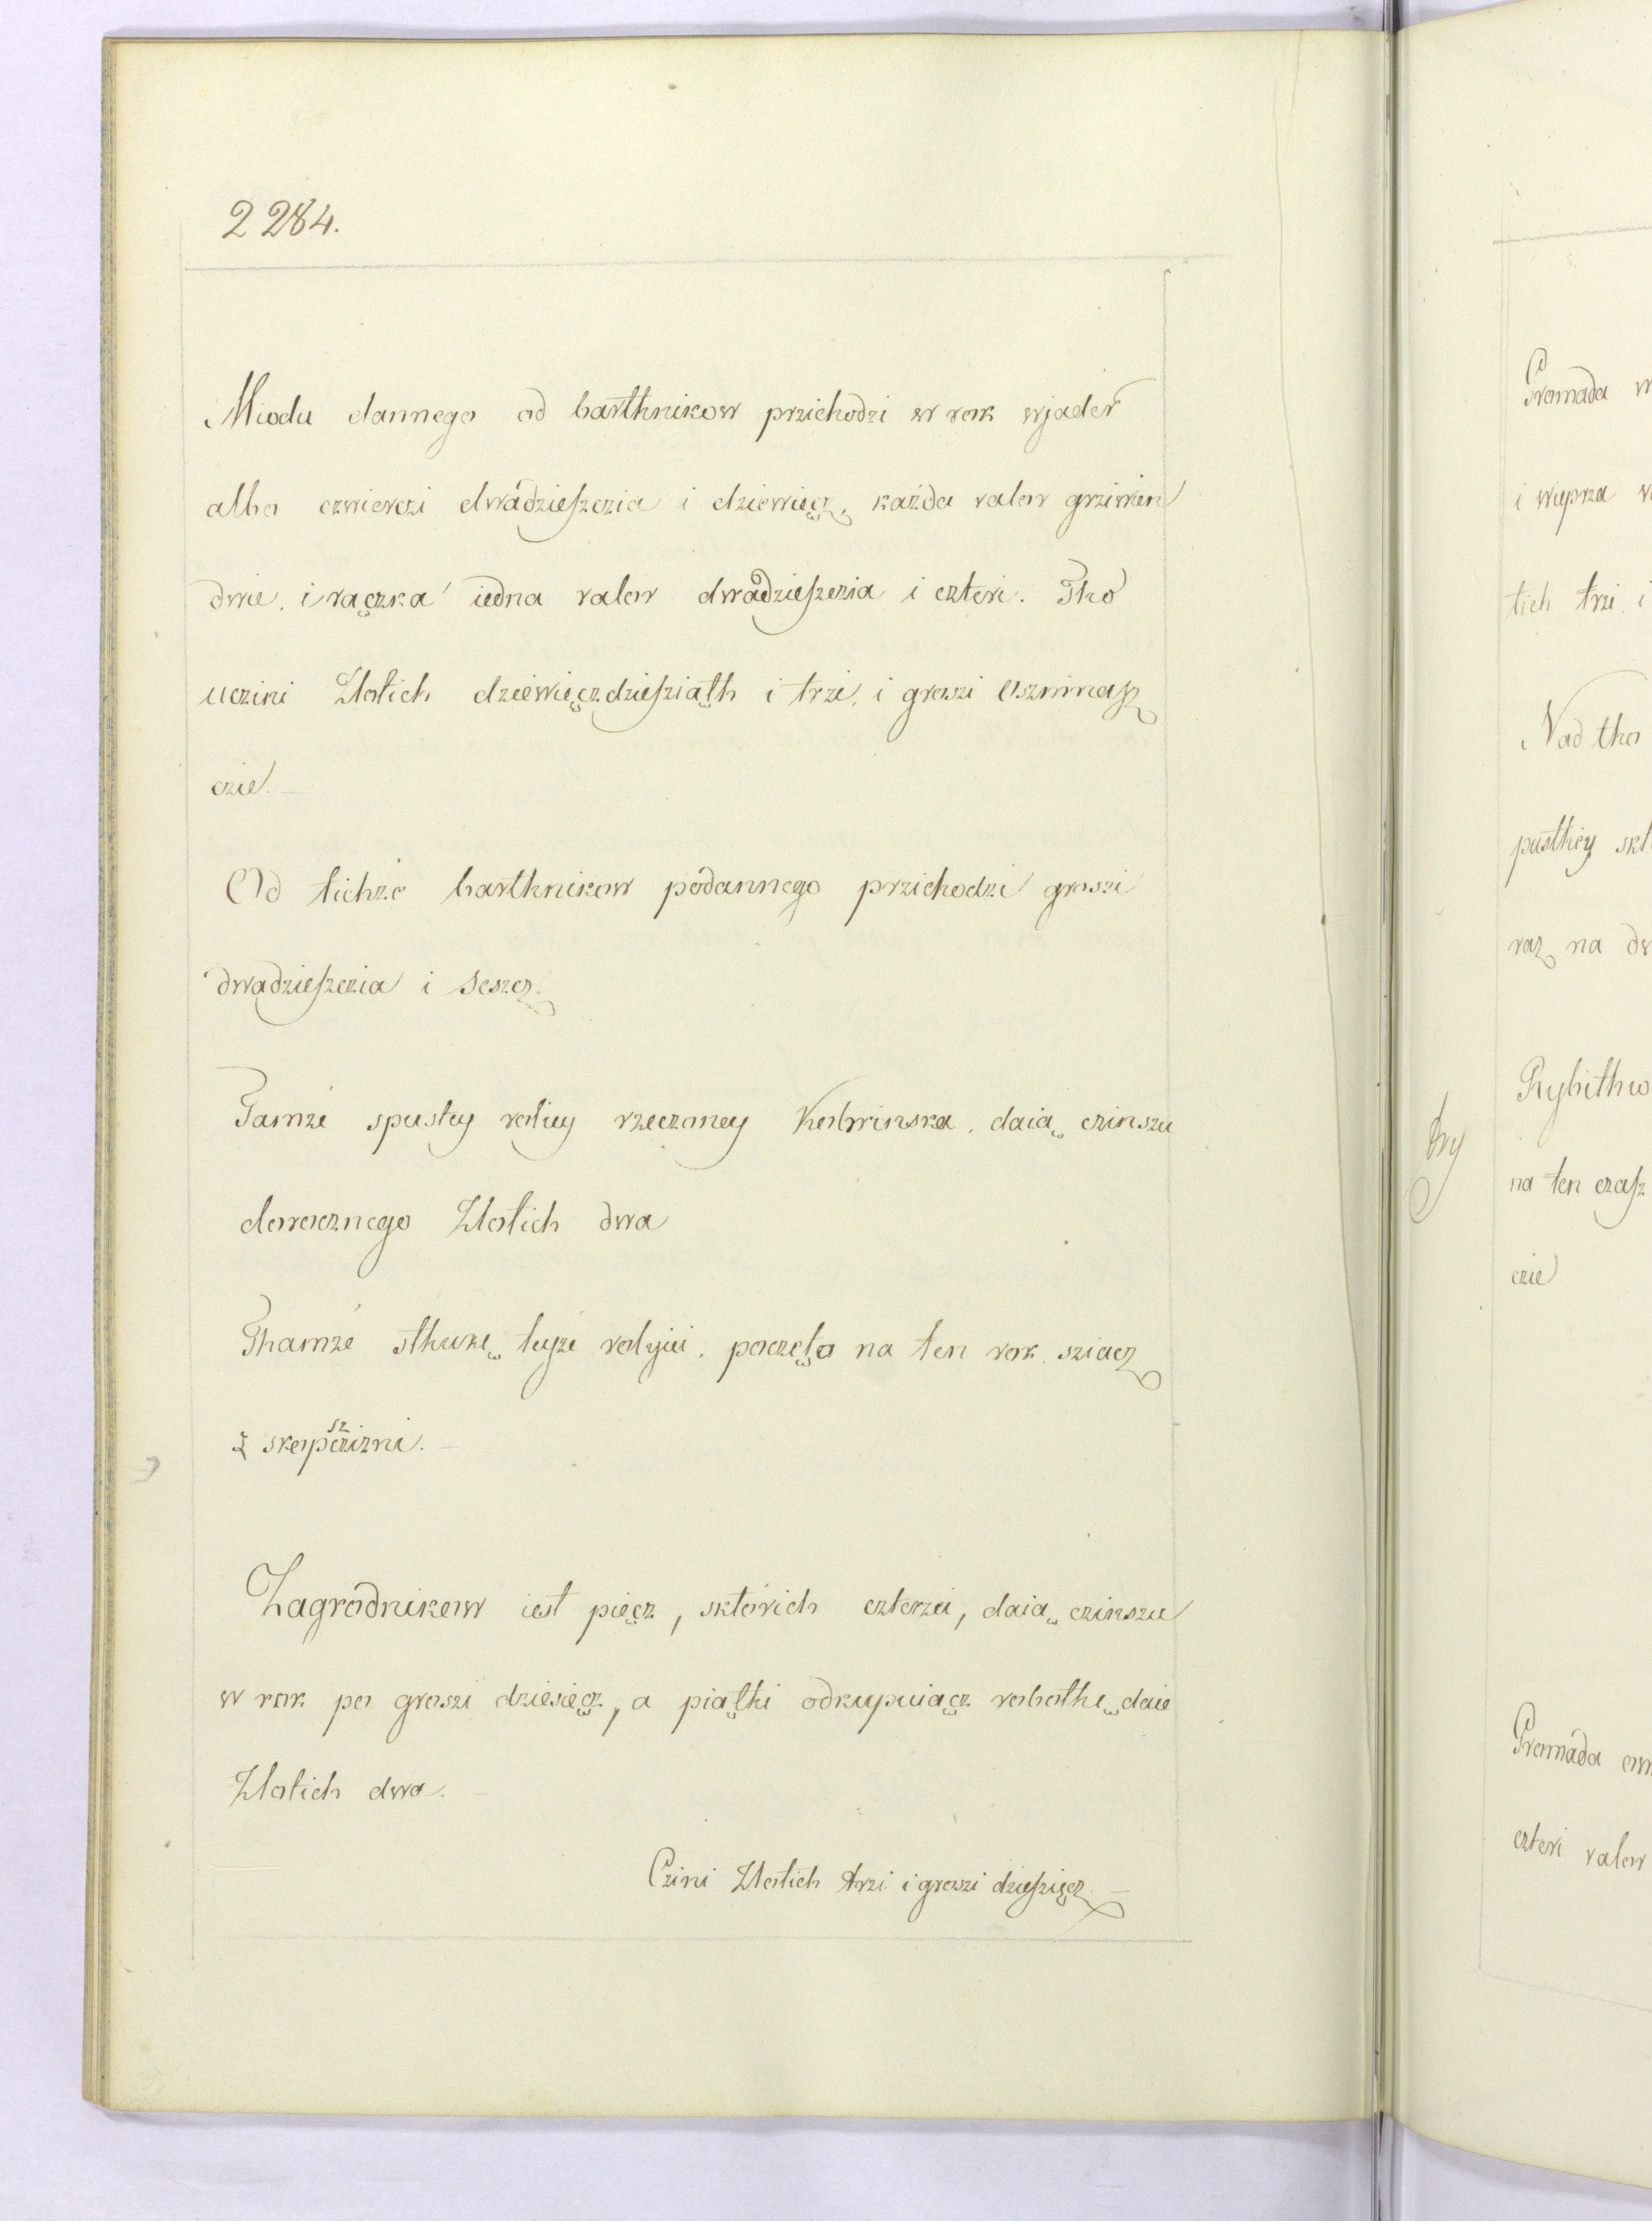 2284.
Miodu dannego od barthnikow przichodzi w rok wjader
albo czwierczi dwádzieſzczia i dziewięcz, każda valor grziwien
dwie. i rączka iedna valor dwádzieſzczia i czteri. Tho
uczini Zlotich dziewięczdzieſziąth i trzi, i groszi Oszminaſz
czie. —
Od tichże barthnikow podannego przichodzi groszi
dwadzieſzczia i szescz.
Tamże spustey roliey rzeczoney Kolwinska. daią czinszu
dorocznego Zlotich dwa
Thamże sthukę teyże roliyei. poczęto na ten rok sziacz
z skopcżizni.
sz
Zagrodnikow iest pięcz, sktórich czterzei, daią czinszu
w rok po groszi dziesięcz, a piątki odkupuiącz robothę daie
Zlotich dwa.
Czini Zlotich trzi i groszi dzieſzięcz. —
Gromada
i wieprza
tich trzi. i
Nad tho
pusthey
raz na
Rybithw
try
na ten czaſz
czie
Gromáda
czteri valor